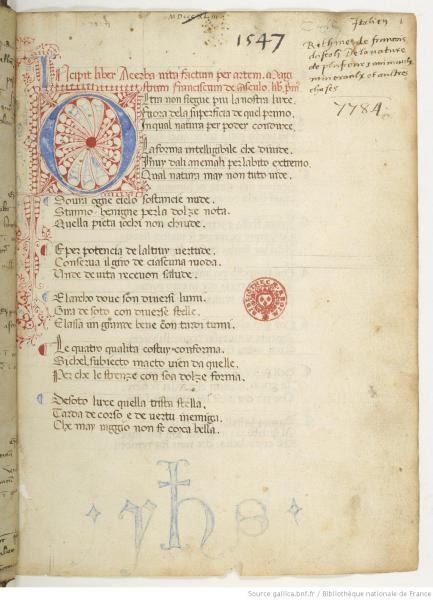 MDCCXLIII
Italien 1
1547
Rithmes de francois
d'ascoli de la nature
de plusieurs animaulx
mineraulx et aultres
choses
7784.
Incipit liber Acerbe uite factum per artem. Magi
strum franciscum de asculo. lib. pm
Oltra non siegue più la nostra luce.
Fuora dela superficia de quel primo.
In qual natura per poder conduce.
La forma intelligibile che diuide.
Nuy dali animali per labito extremo.
Qual natura may non tuto uide.
Soura ogne cielo sostancie nude.
Stanno benigne per la dolze nota.
Quella pieta iochi non chiude.
E per potencia de laltuy uertude.
Conserua il giro de ciascuna rioda.
Unde de uita receuon salude.
Elarcho doue son diuersi lumi.
Gira de soto con diuerse stelle.
Elassa un grande bene con tardi lumi.
Le quatro qualita costuy conforma.
Si chel subiecto macto uien da quelle.
Per che le strenze con soa dolze forma.
Desoto luce quella trista stella.
Tarda de corso e de uertu inemiga.
Che may raggio non fe coxa bella.
yhs
Source gallica.bnf.fr / Bibliothèque nationale de France